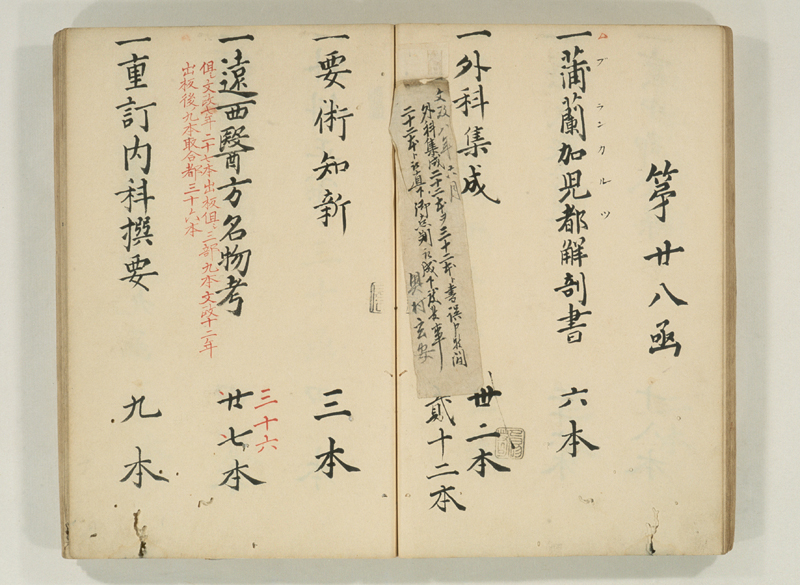 第廿八凾
ブランカルツ
一蒲蘭加児都解剖書 六本
一外科集成 卅二本
貳十二本
文政八年六月
外科集成二十二本ヲ三十二本ト書誤
二十二本ト
奥村玄安
一要術知新 三本
一遠西醫方名物考 廿七本
三十六
但文政七年二十七本出板但三部九本文政十二年
出板後九本取合都三十六本
一重訂内科撰要 九本